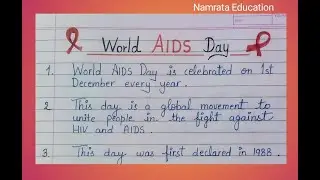 Namrata Education
World AIDS Day
1. World AIDS Day is celebrated on 1st
December every year.
2. This day is a global movement to
unite people in the fight against
HIV and AIDS.
3. This day was first declared in 1988.